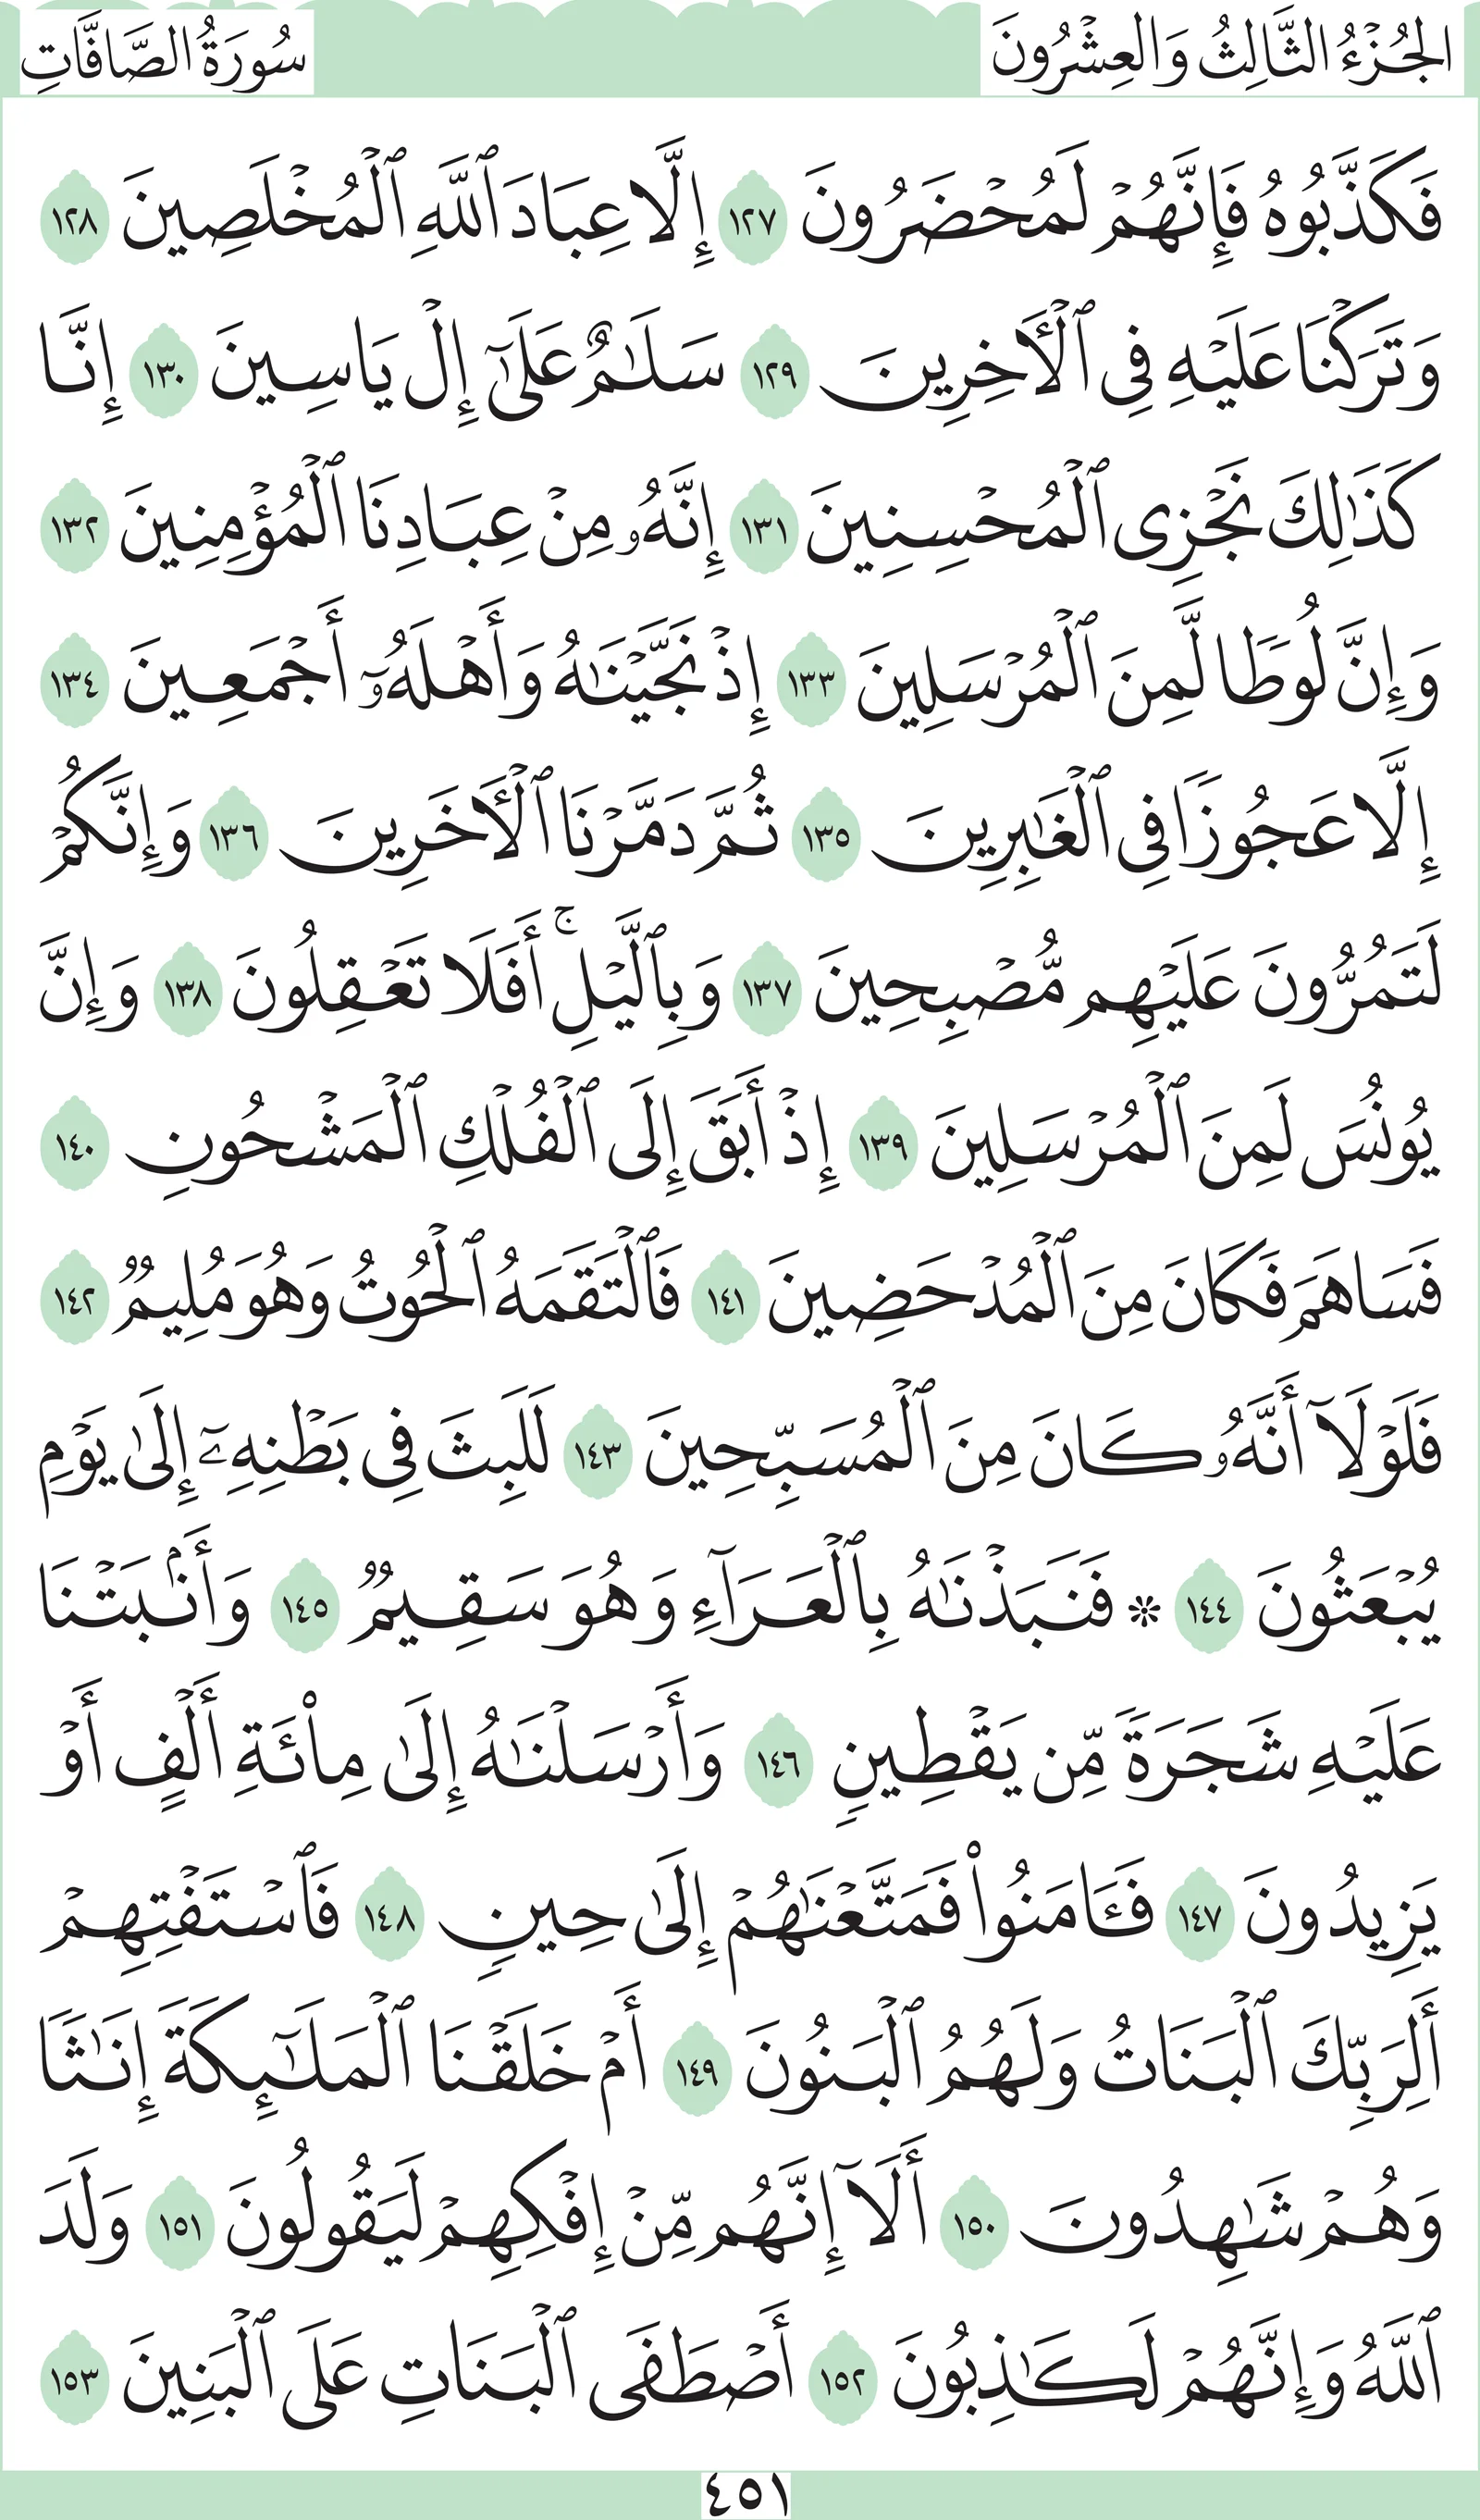 الجُزْءُ الثَّالِثُ وَالعِشْرُونَ
سُورَةُ الصَّافَّاتِ
فَكَذَّبُوهُ فَإِنَّهُمْ لَمُحْضَرُونَ ١٢٧ إِلَّا عِبَادَ ٱللَّهِ ٱلْمُخْلَصِينَ ١٢٨
وَتَرَكْنَا عَلَيْهِ فِى ٱلْأَخِرِينَ ١٢٩ سَلَـٰمٌ عَلَىٰٓ إِلْ يَاسِينَ ١٣٠ إِنَّا
كَذَٰلِكَ نَجْزِى ٱلْمُحْسِنِينَ ١٣١ إِنَّهُۥ مِنْ عِبَادِنَا ٱلْمُؤْمِنِينَ ١٣٢
وَإِنَّ لُوطًا لَّمِنَ ٱلْمُرْسَلِينَ ١٣٣ إِذْ نَجَّيْنَـٰهُ وَأَهْلَهُۥٓ أَجْمَعِينَ ١٣٤
إِلَّا عَجُوزًا فِى ٱلْغَـٰبِرِينَ ١٣٥ ثُمَّ دَمَّرْنَا ٱلْأَخَرِينَ ١٣٦ وَإِنَّكُمْ
لَتَمُرُّونَ عَلَيْهِم مُّصْبِحِينَ ١٣٧ وَبِٱلَّيْلِ ۚ أَفَلَا تَعْقِلُونَ ١٣٨ وَإِنَّ
يُونُسَ لَمِنَ ٱلْمُرْسَلِينَ ١٣٩ إِذْ أَبَقَ إِلَى ٱلْفُلْكِ ٱلْمَشْحُونِ ١٤٠
فَسَاهَمَ فَكَانَ مِنَ ٱلْمُدْحَضِينَ ١٤١ فَٱلْتَقَمَهُ ٱلْحُوتُ وَهُوَ مُلِيمٌ ١٤٢
فَلَوْلَآ أَنَّهُۥ كَانَ مِنَ ٱلْمُسَبِّحِينَ ١٤٣ لَلَبِثَ فِى بَطْنِهِۦٓ إِلَىٰ يَوْمِ
يُبْعَثُونَ ١٤٤ ۞ فَنَبَذْنَـٰهُ بِٱلْعَرَآءِ وَهُوَ سَقِيمٌ ١٤٥ وَأَنۢبَتْنَا
عَلَيْهِ شَجَرَةً مِّن يَقْطِينٍ ١٤٦ وَأَرْسَلْنَـٰهُ إِلَىٰ مِا۟ئَةِ أَلْفٍ أَوْ
يَزِيدُونَ ١٤٧ فَـَٔامَنُوا۟ فَمَتَّعْنَـٰهُمْ إِلَىٰ حِينٍ ١٤٨ فَٱسْتَفْتِهِمْ
أَلِرَبِّكَ ٱلْبَنَاتُ وَلَهُمُ ٱلْبَنُونَ ١٤٩ أَمْ خَلَقْنَا ٱلْمَلَـٰٓئِكَةَ إِنَـٰثًا
وَهُمْ شَـٰهِدُونَ ١٥٠ أَلَآ إِنَّهُم مِّنْ إِفْكِهِمْ لَيَقُولُونَ ١٥١ وَلَدَ
ٱللَّهُ وَإِنَّهُمْ لَكَـٰذِبُونَ ١٥٢ أَصْطَفَى ٱلْبَنَاتِ عَلَى ٱلْبَنِينَ ١٥٣
٤٥١